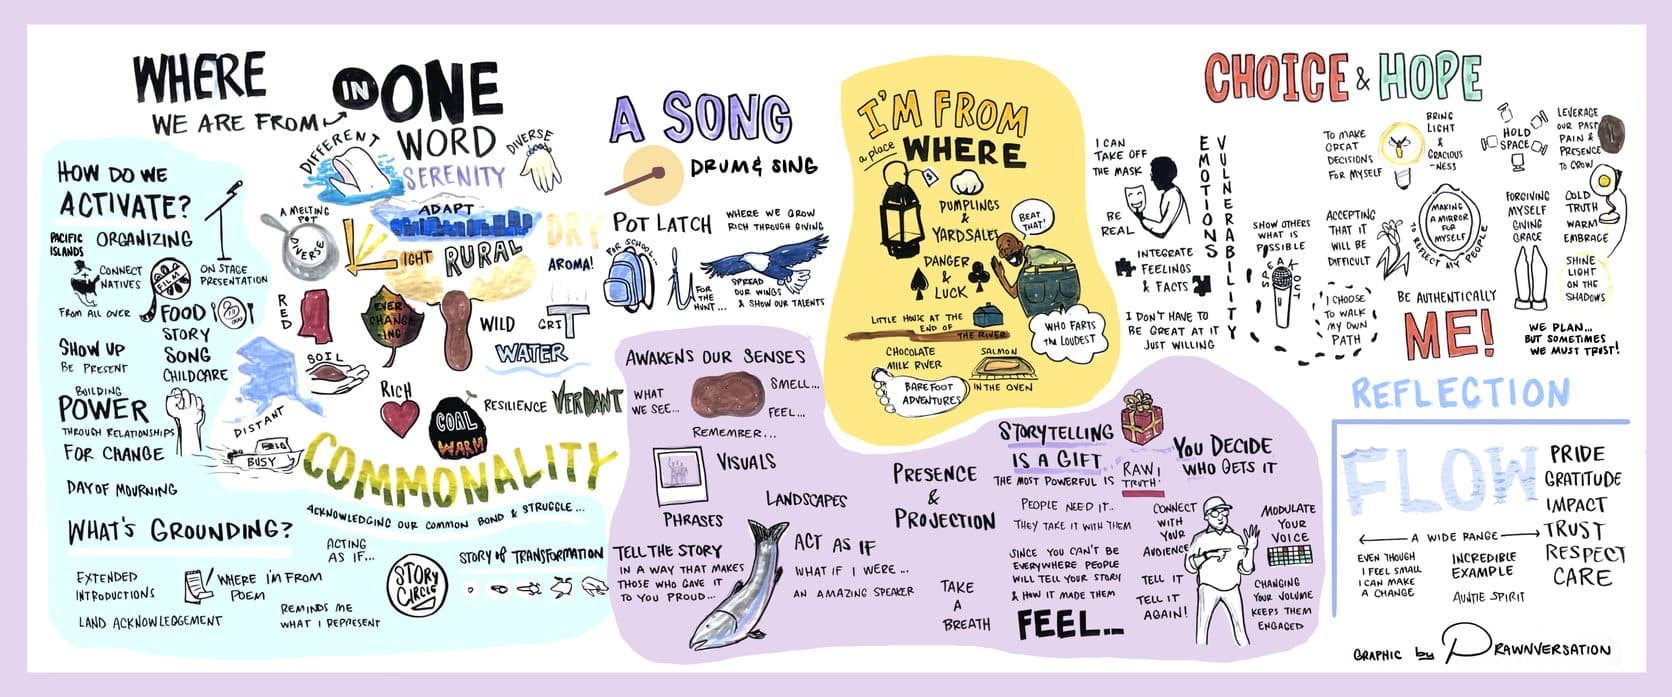 WHERE
WE ARE FROM
IN ONE
WORD
DIFFERENT
DIVERSE
SERENITY
ADAPT
A MELTING
POT
DIVERSE
LIGHT
RURAL
DRY
AROMA!
RED
EVER
CHANG
ING
WILD
GRIT
WATER
SOIL
DISTANT
RICH
COAL
WARM
RESILIENCE
VERDANT
BUSY
COMMONALITY
ACKNOWLEDGING OUR COMMON BOND & STRUGGLE...
HOW DO WE
ACTIVATE?
PACIFIC
ISLANDS
ORGANIZING
CONNECT
NATIVES
FROM ALL OVER
FILM
ON STAGE
PRESENTATION
FOOD
STORY
SONG
CHILDCARE
SHOW UP
BE PRESENT
BUILDING
POWER
THROUGH RELATIONSHIPS
FOR CHANGE
DAY OF MOURNING
WHAT'S GROUNDING?
EXTENDED
INTRODUCTIONS
LAND ACKNOWLEDGEMENT
WHERE I'M FROM
POEM
ACTING
AS IF...
REMINDS ME
WHAT I REPRESENT
STORY
CIRCLE
STORY OF TRANSFORMATION
A SONG
DRUM & SING
POT LATCH
WHERE WE GROW
RICH THROUGH GIVING
FOR SCHOOL...
FOR
THE
HUNT...
SPREAD
OUR WINGS
& SHOW OUR TALENTS
AWAKENS OUR SENSES
WHAT
WE SEE...
SMELL...
FEEL...
REMEMBER...
VISUALS
LANDSCAPES
PHRASES
TELL THE STORY
IN A WAY THAT MAKES
THOSE WHO GAVE IT
TO YOU PROUD...
ACT AS IF
WHAT IF I WERE...
AN AMAZING SPEAKER
PRESENCE
&
PROJECTION
TAKE
A
BREATH
I'M FROM
a place
WHERE
PUMPLINGS
&
YARDSALES
DANGER
&
LUCK
BEAT
THAT!
LITTLE HOUSE AT THE
END OF
THE RIVER
WHO FARTS
the LOUDEST
CHOCOLATE
MILK RIVER
SALMON
IN THE OVEN
BAREFOOT
ADVENTURES
STORYTELLING
IS A GIFT
THE MOST POWERFUL IS
RAW!
TRUTH!
YOU DECIDE
WHO GETS IT
PEOPLE NEED IT..
THEY TAKE IT WITH THEM
SINCE YOU CAN'T BE
EVERYWHERE PEOPLE
WILL TELL YOUR STORY
& HOW IT MADE THEM
FEEL...
CONNECT
WITH
YOUR
AUDIENCE
TELL IT
TELL IT
AGAIN!
MODULATE
YOUR
VOICE
CHANGING
YOUR VOLUME
KEEPS THEM
ENGAGED
CHOICE & HOPE
I CAN
TAKE OFF
THE MASK
BE
REAL
INTEGRATE
FEELINGS
& FACTS
I DON'T HAVE TO
BE GREAT AT IT
JUST WILLING
EMOTIONS
VULNERABILITY
SHOW OTHERS
WHAT IS
POSSIBLE
SPEAK OUT
TO MAKE
GREAT
DECISIONS
FOR MYSELF
BRING
LIGHT
&
GRACIOUS
-NESS
ACCEPTING
THAT IT
WILL BE
DIFFICULT
MAKING
A MIRROR
FOR
MYSELF
TO REFLECT MY PEOPLE
I CHOOSE
TO WALK
MY OWN
PATH
BE AUTHENTICALLY
ME!
HOLD
SPACE
LEVERAGE
OUR PAST
PAIN &
PRESENCE
TO GROW
FORGIVING
MYSELF
GIVING
GRACE
COLD
TRUTH
WARM
EMBRACE
SHINE
LIGHT
ON THE
SHADOWS
WE PLAN...
BUT SOMETIMES
WE MUST TRUST!
REFLECTION
FLOW
A WIDE RANGE
EVEN THOUGH
I FEEL SMALL
I CAN MAKE
A CHANGE
INCREDIBLE
EXAMPLE
AUNTIE SPIRIT
PRIDE
GRATITUDE
IMPACT
TRUST
RESPECT
CARE
GRAPHIC by DRAWNVERSATION